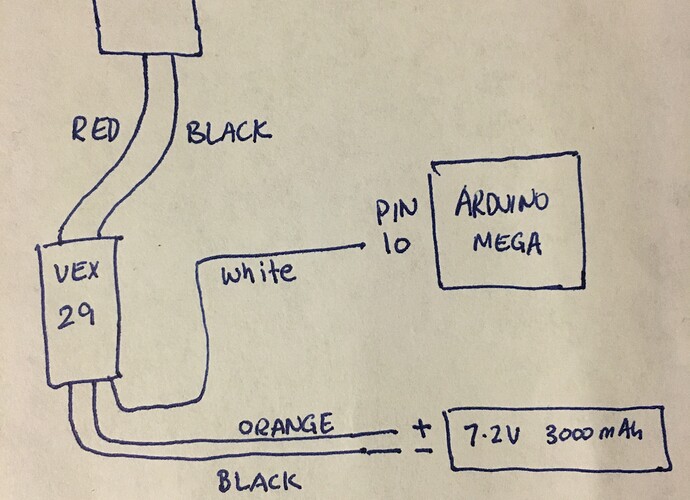 RED
BLACK
PIN
10
ARDUINO
MEGA
VEX
29
white
ORANGE
+
-
7.2V 3000mAh
BLACK